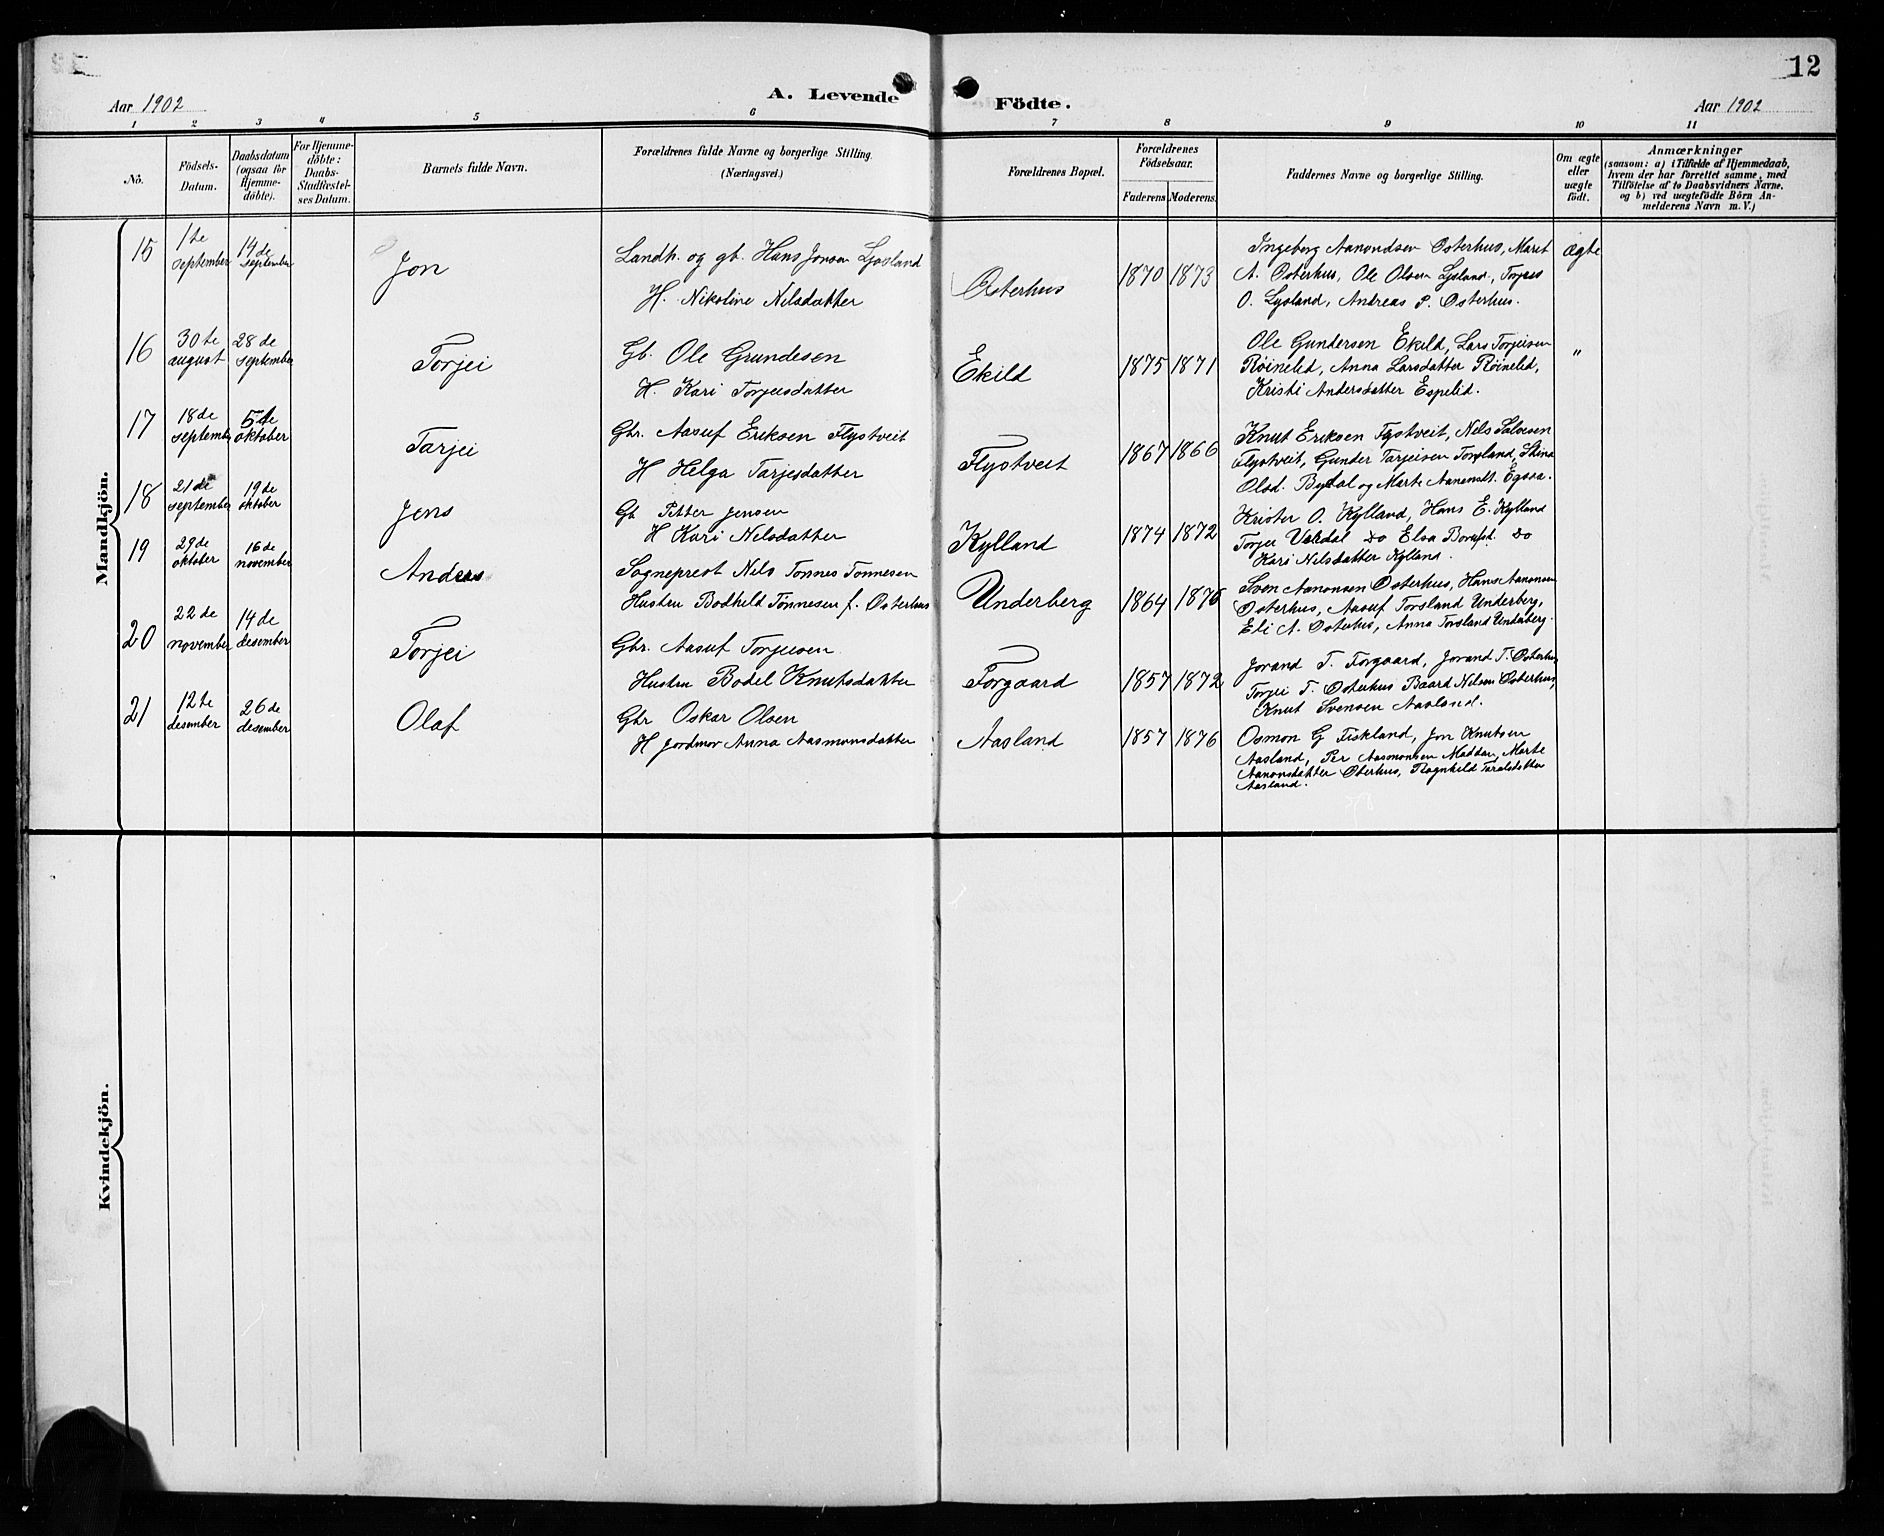 12
Aar 1902
A. Levende Födte.
Aar 1902
1 2 3 4 5 6 7 8 9 10 11
No.
Födsels-
Datum.
Daabsdatum
(ogsaa for
Hjemme-
döbte).
For Hjemme-
döbte:
Daabs-
Stadfestel-
ses Datum.
Barnets fulde Navn.
Forældrenes fulde Navne og borgerlige Stilling.
(Næringsvei.)
Forældrenes Bopæl.
Forældrenes
Födselsaar.
Faderens. Moderens.
Faddernes Navne og borgerlige Stilling.
Om ægte
eller
uægte
födt.
Anmærkninger
(saasom: a) i Tilfælde af Hjemmedaab,
hvem der har forrettet samme, med
Tilföielse af to Daabsvidners Navne,
og b) ved uægtefödte Börn An-
melderens Navn m. V.)
Mandkjön.
15
1te
september
14de
september
Jon
Landh. og gb. Hans Jonsen Lysland
H. Nikoline Nilsdatter
Østerhus
1870 1873
Ingeborg Aanondsen Østerhus, Maret
A. Østerhus, Ole Olsen Lysland, Torjus
O. Lysland, Andreas P. Østerhus.
ægte
16
30te
august
28de
september
Torjei
Gb. Ole Grundesen
H. Kari Torjusdatter
Ekild
1875 1871
Ole Gundersen Ekild, Lars Torjeisen
Røinelid, Anna Larsdatter Røinelid,
Kristi Andersdatter Espelid.
"
17
18de
september
5te
oktober
Tarjei
Gbr. Aasuf Eriksen Flystveit
H Helga Tarjesdatter
Flystveit
1867 1866
Knut Eriksen Flystveit, Nils Salvesen
Flystveit, Gunder Tarjeisen Torsland, Stina
Olsd. Bydal og Marte Aanonsdt. Egsaa.
18
21de
september
19de
oktober
Jens
Gb Petter Jensen
H Kari Nilsdatter
Kylland
1874 1872
Krister O. Kylland, Hans E. Kylland
Torjer do Elsa do
Kari Nilsdatter Kylland.
19
29de
oktober
16de
november
Anders
Sogneprest Nils Tønnes Tønnesen
Hustru Bodhild Tønnesen f. Østerhus
Underberg
1864 1876
Sven Aanonsen Østerhus, Hans Aanonsen
Østerhus, Aasuf Torsland Underberg,
Eli A. Østerhus, Anna Torsland Underberg.
20
22de
november
14de
desember
Torjei
Gbr. Aasuf Torjusen
Hustru Bodel Knutsdatter
Forgaard
1857 1872
Jorand T. Forgaard, Jorand T. Østerhus
Torjei T. Østerhus Baard Nilsen Østerhus,
Knut Svensen Aasland.
21
12te
desember
26de
desember
Olaf
Gbr Oskar Olsen
H Jordmor Anna Aasmonsdatter
Aasland
1857 1876
Osmon G Fiskland, Jon Knutsen
Aasland, Per Aasmonsen Maddan, Marte
Aanonsdatter Østerhus, Ragnhild Taraldsdatter
Aasland.
Kvindekjön.